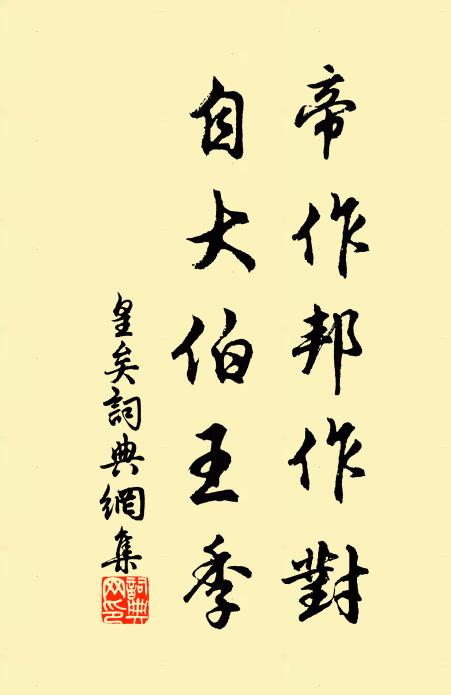 帝作邦作對
自大伯王季
皇矣詞典網集
詞典網印